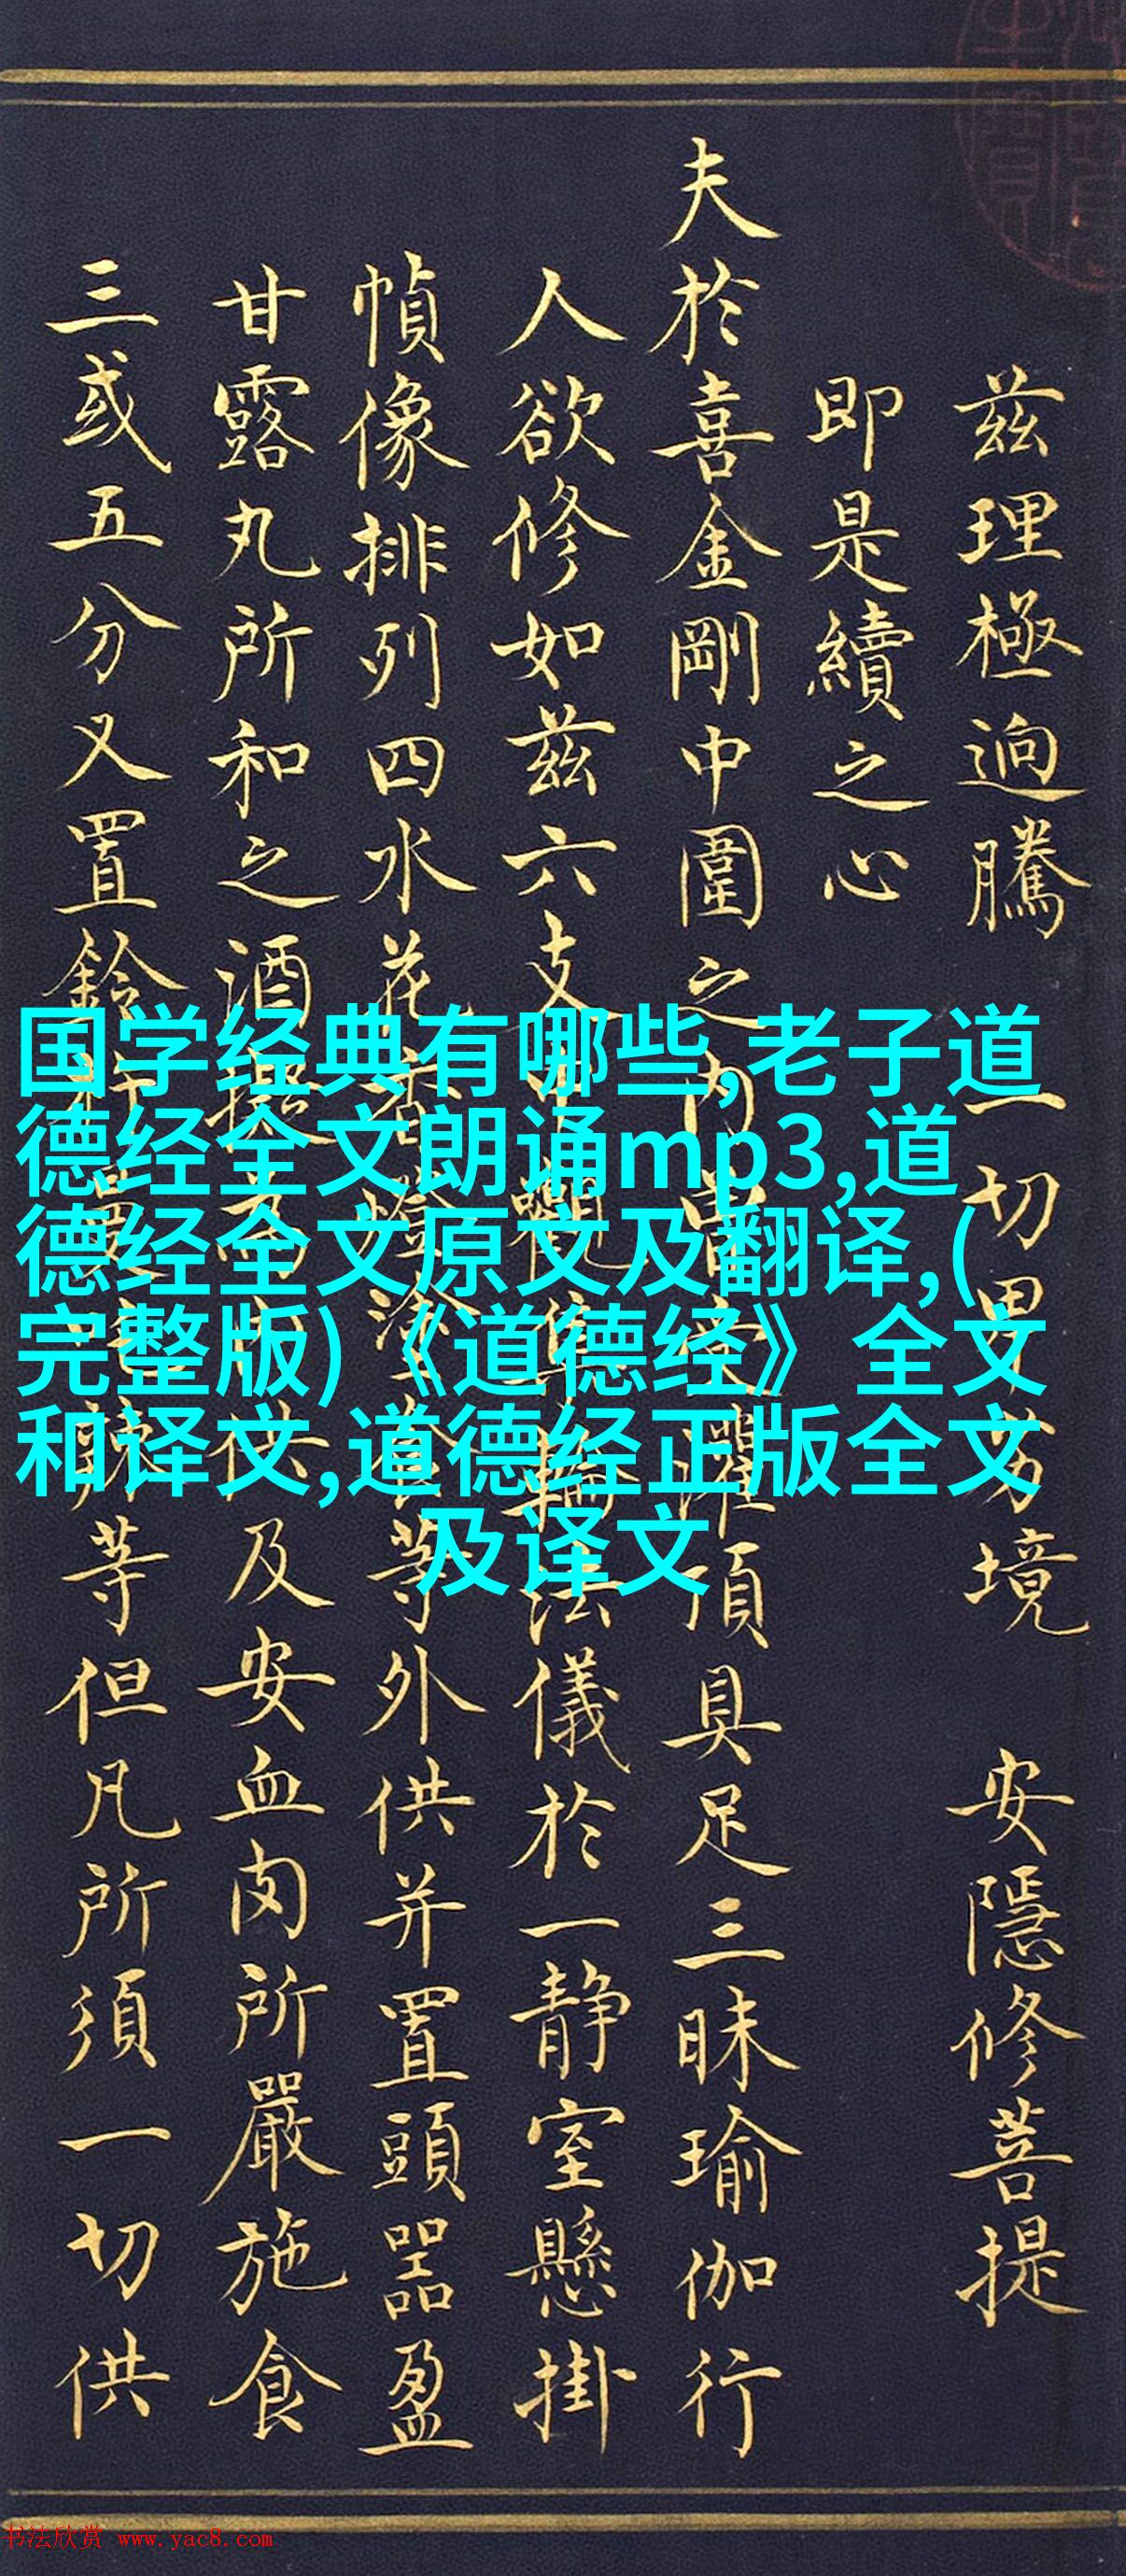 茲理極逈騰 一切境 安隱修菩提
即是續之心
夫於喜金剛中圍之內頂具足三昧瑜伽行
人欲修如茲六支觀法儀於一靜室懸掛
幀像排列四水花等外供并置頭器盈
甘露丸所和之酒供及安血肉所嚴施食
三或五分又置鈴等但凡所須一切供
国学经典有哪些,老子道
德经全文朗诵mp3,道
德经全文原文及翻译,(
完整版)《道德经》全文
和译文,道德经正版全文
及译文
书法欣赏 www.yac8.com